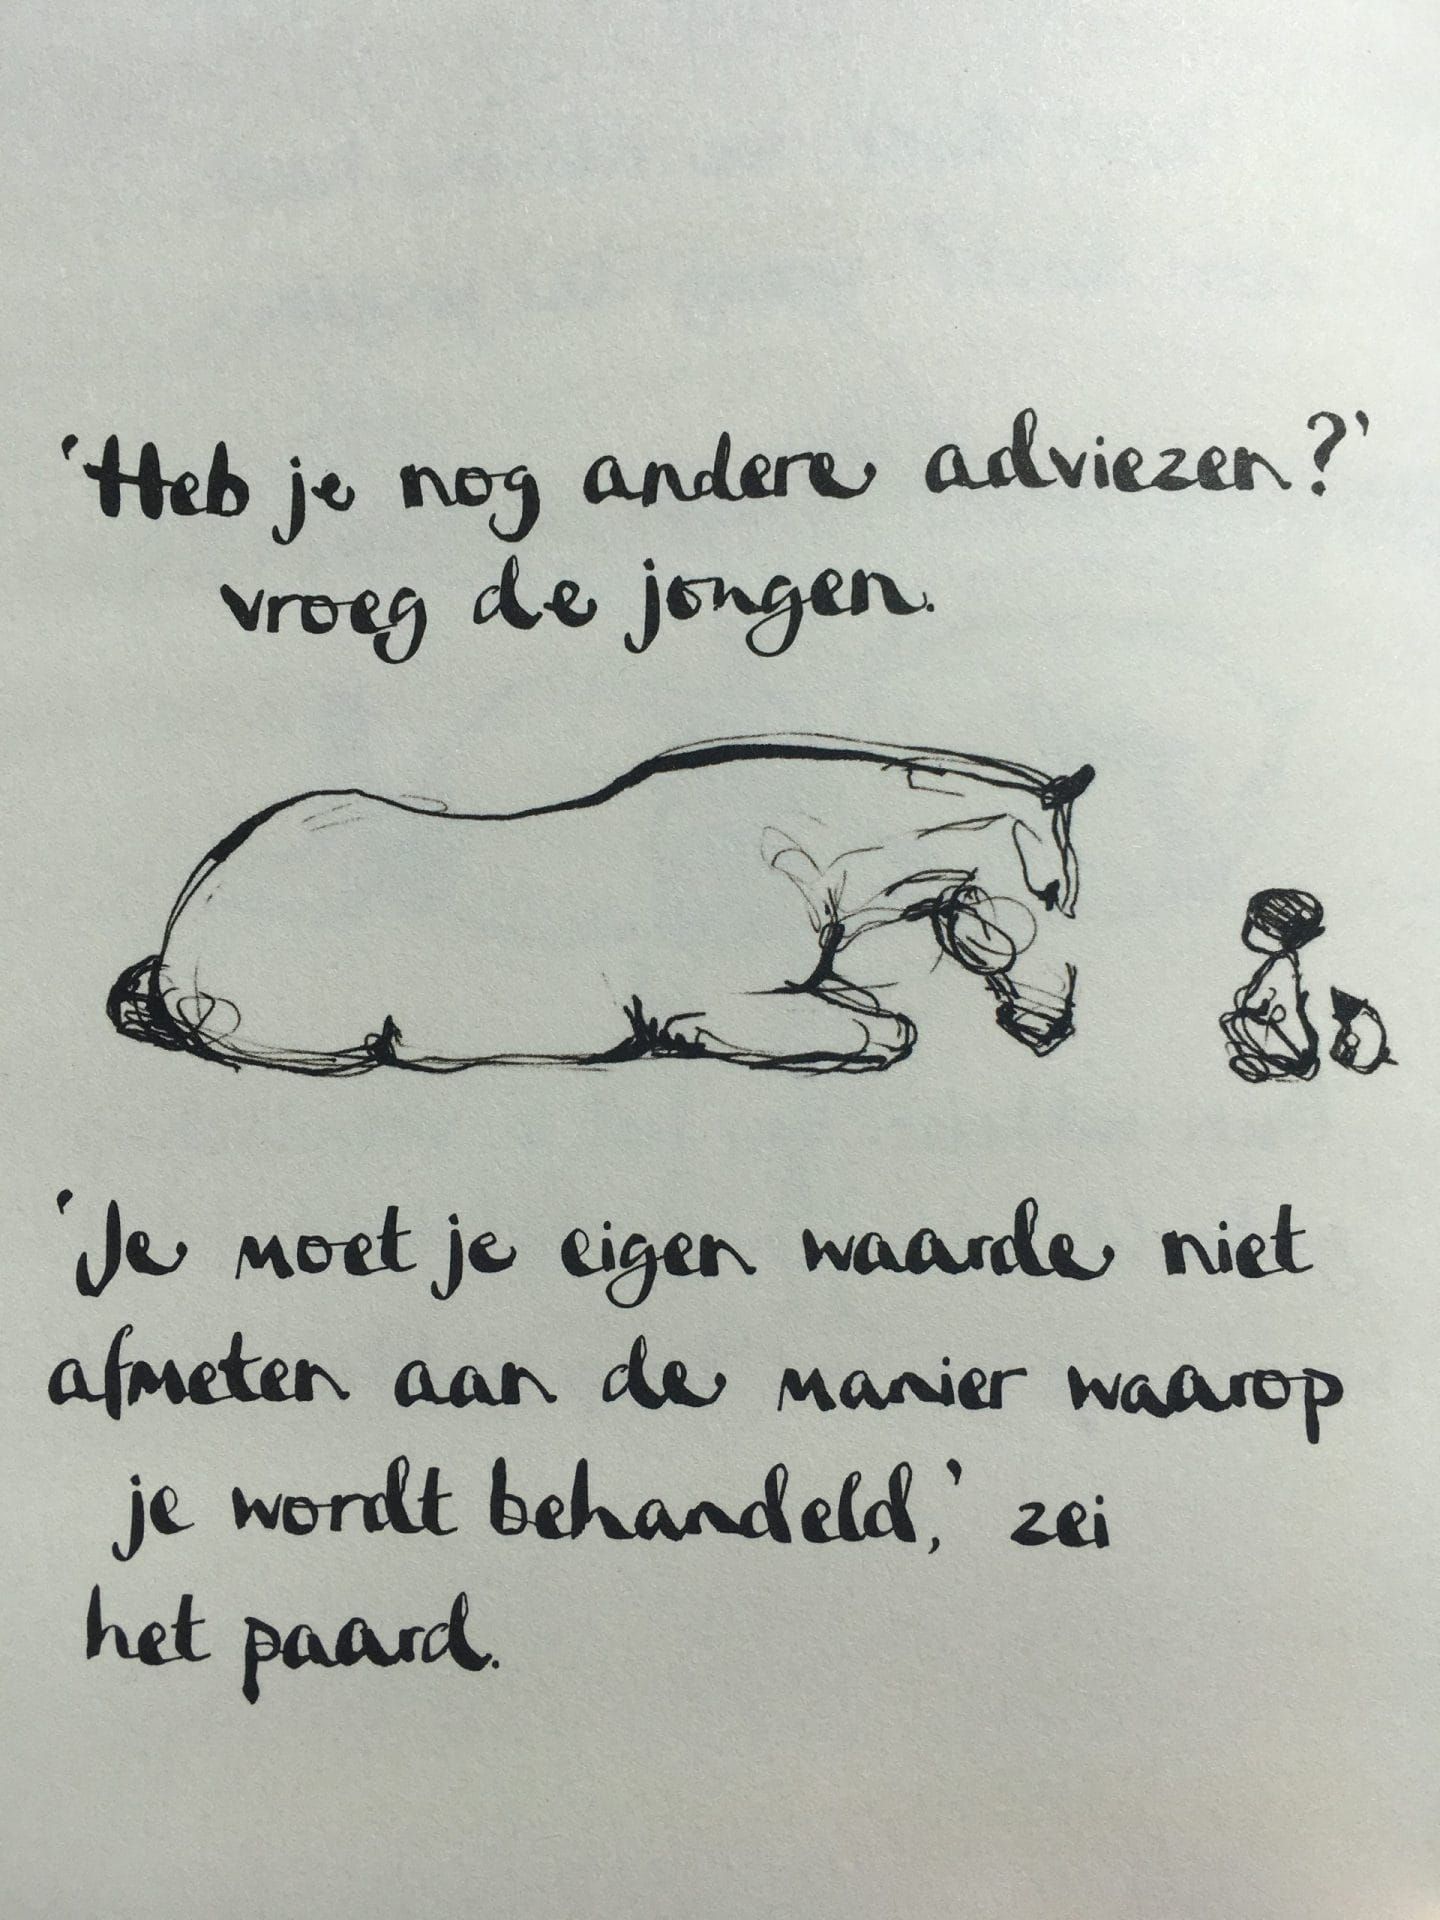 'Heb je nog andere adviezen?'
vroeg de jongen.
'Je moet je eigen waarde niet
afmeten aan de manier waarop
je wordt behandeld,' zei
het paard.